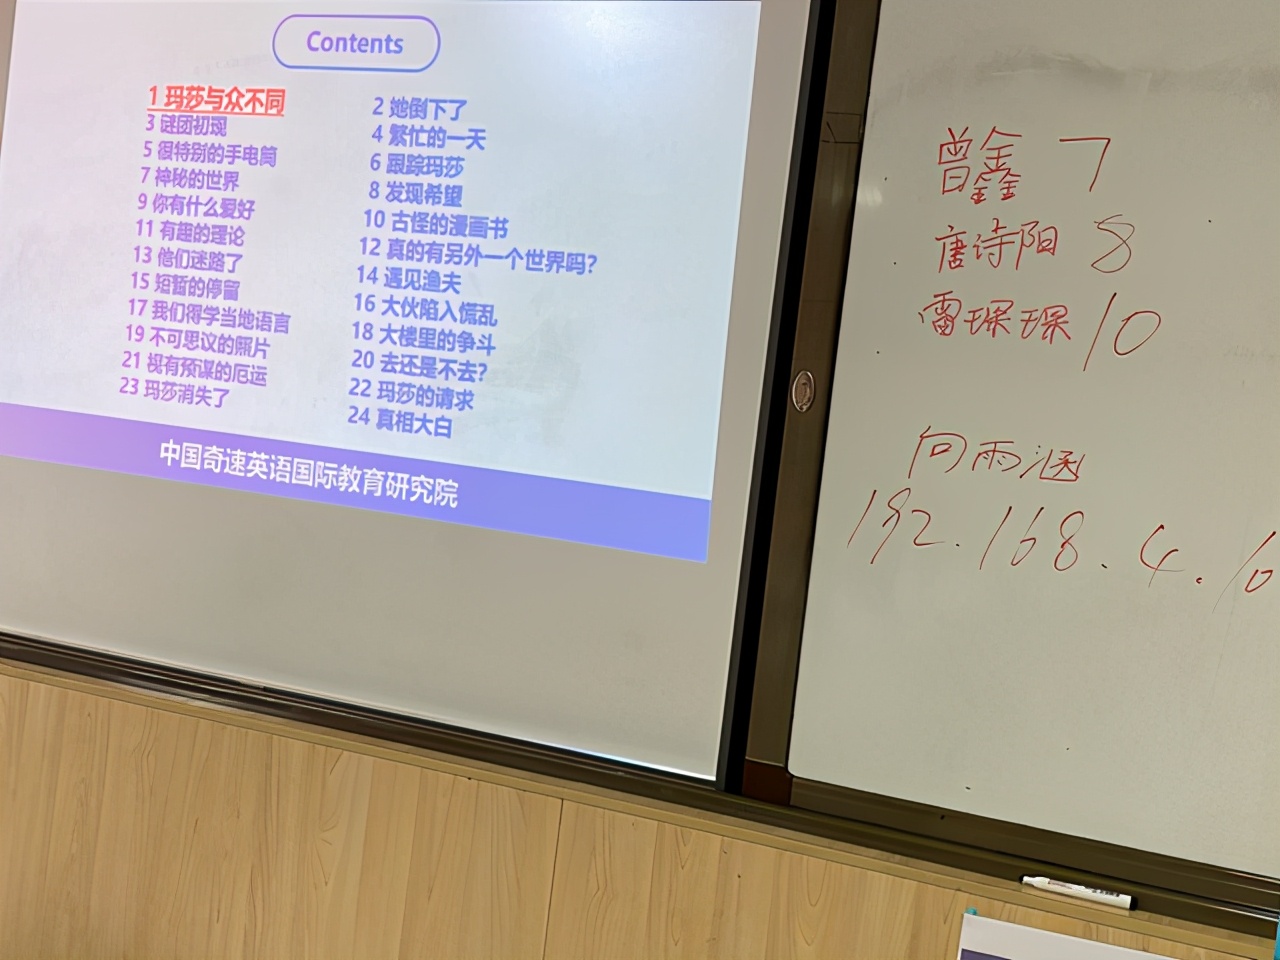 Contents
1 玛莎与众不同
2 她倒下了
3 谜团初现
4 繁忙的一天
5 很特别的手电筒
6 跟踪玛莎
7 神秘的世界
8 发现希望
9 你有什么爱好
10 古怪的漫画书
11 有趣的理论
12 真的有另外一个世界吗?
13 他们迷路了
14 遇见渔夫
15 短暂的停留
16 大伙陷入慌乱
17 我们得学当地语言
18 大楼里的争斗
19 不可思议的照片
20 去还是不去?
21 早有预谋的厄运
22 玛莎的请求
23 玛莎消失了
24 真相大白
中国奇速英语国际教育研究院
曾鑫鑫 7
唐诗阳 8
雷琛琛 10
向雨涵
192.168.4.10